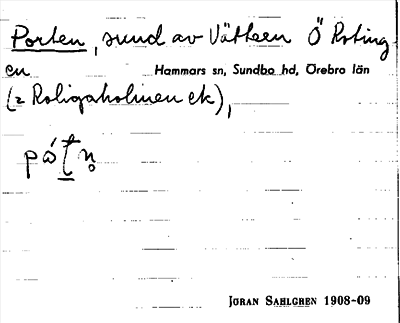 Porten, sund av Vättern Ö Roting
en Hammars sn, Sundbo hd, Örebro län
(2 Roligaholmen ek),
pòt̲n̥
JÖRAN SAHLGREN 1908-09